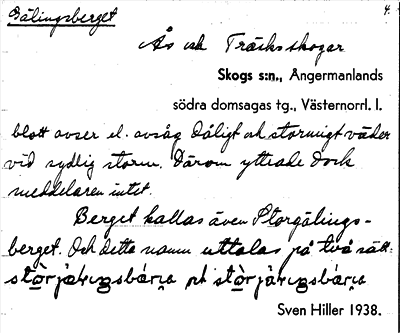 Gälingsberget
4.
Ås och Träsks skogar
Skogs s:n., Ångermanlands
södra domsagas tg., Västernorrl. l.
blott avser el. avsåg dåligt och stormigt väder
vid sydlig storm. Därom yttrade dock
meddelaren intet.
Berget kallas även Storgälings-
berget. Och detta namn uttalas på två sätt:
och
Sven Hiller 1938.